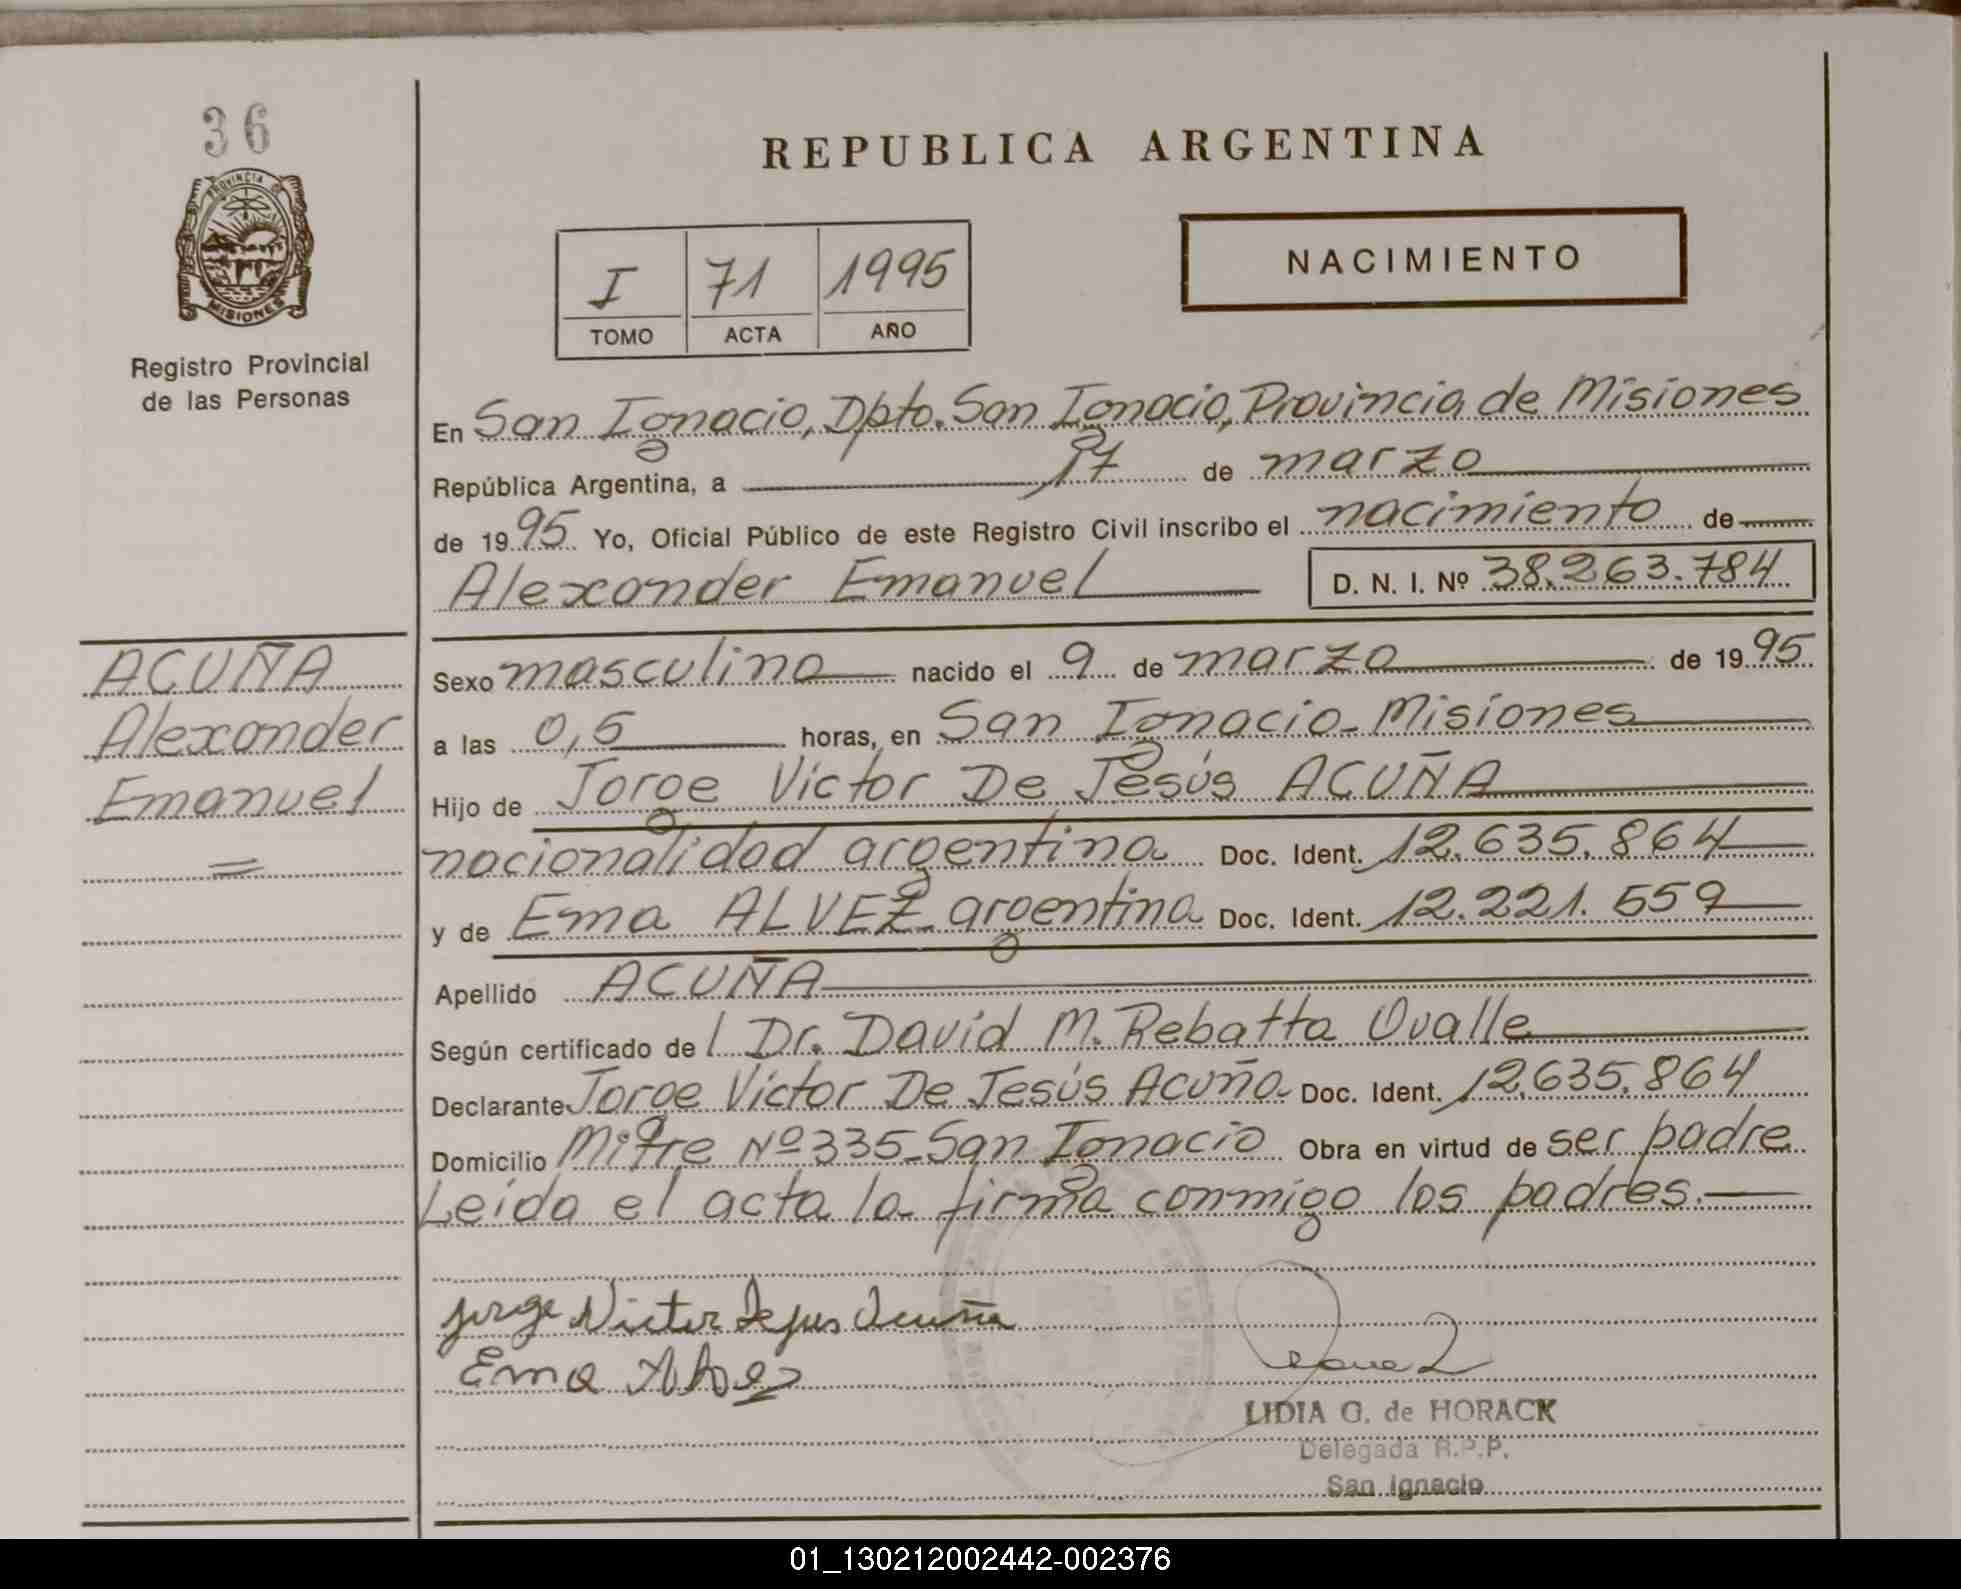 36
PROVINCIA DE
MISIONES
Registro Provincial
de las Personas
REPUBLICA ARGENTINA
I 71 1995
TOMO ACTA AÑO
NACIMIENTO
En San Ignacio, Dpto. San Ignacio, Provincia de Misiones
República Argentina, a 17 de marzo
de 1995 Yo, Oficial Público de este Registro Civil inscribo el nacimiento de
Alexander Emanuel D. N. I. Nº 38.263.784
ACUÑA
Alexander
Emanuel
=
Sexo masculino nacido el 9 de marzo de 1995
a las 0,5 horas, en San Ignacio-Misiones
Hijo de Jorge Victor De Jesús ACUÑA
nacionalidad argentina Doc. Ident. 12.635.864
y de Ema ALVEZ argentina Doc. Ident. 12.221.559
Apellido ACUÑA
Según certificado del Dr. David M. Rebatta Ovalle
Declarante Jorge Victor De Jesús Acuña Doc. Ident. 12.635.864
Domicilio Mitre Nº 335-San Ignacio Obra en virtud de ser padre
Leida el acta la firma conmigo los padres.
Jorge Victor Dejesus Acuña
Ema Alvez
LIDIA G. de HORACK
Delegada R.P.P.
San Ignacio
01_130212002442-002376